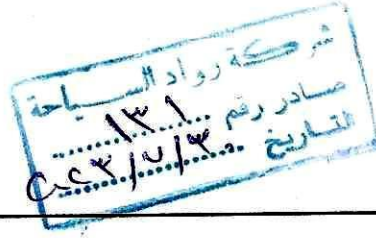 شركة رواد السياحة
صادر رقم ١٣١
التاريخ ٢٠٢٣/٧/٣٠